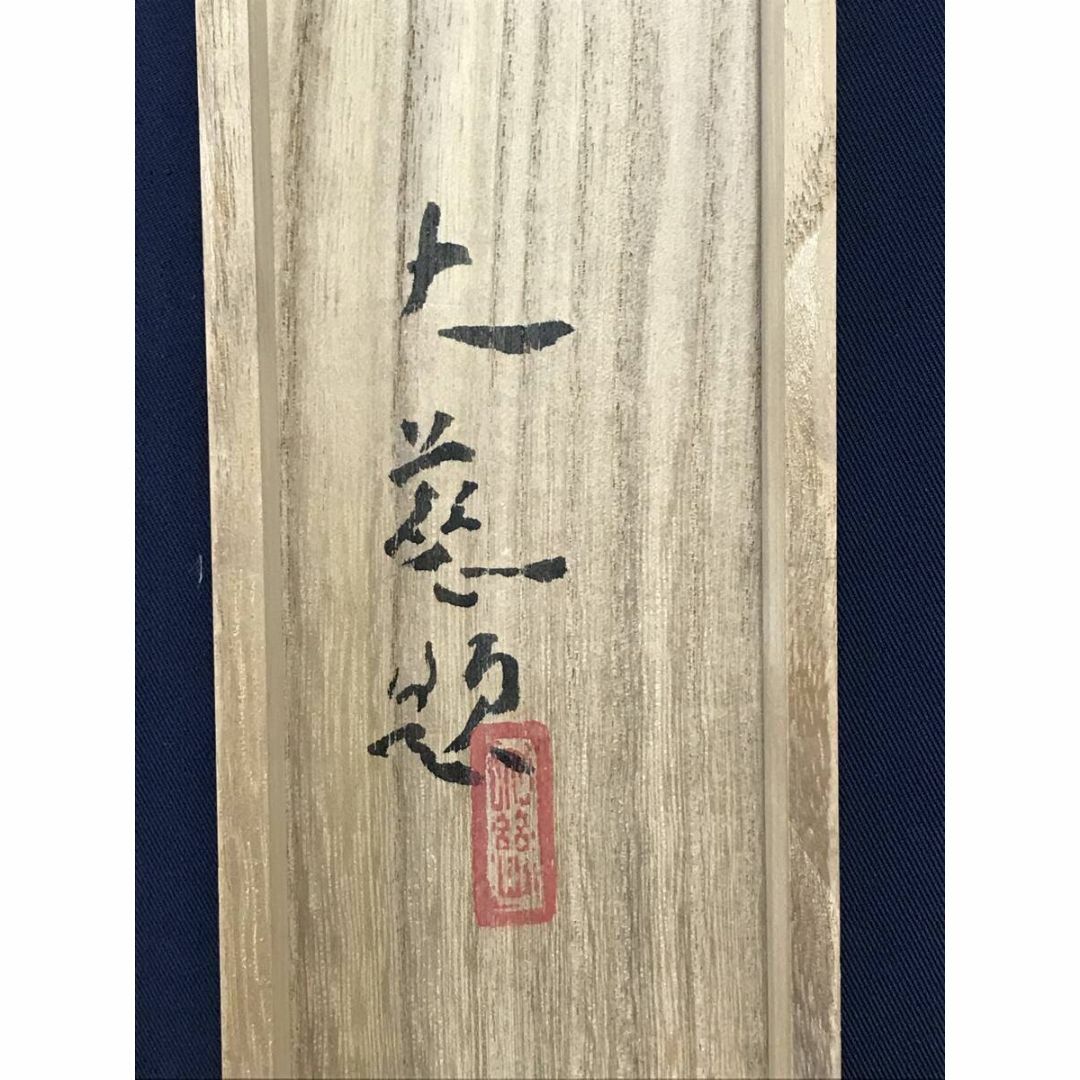 大慈題